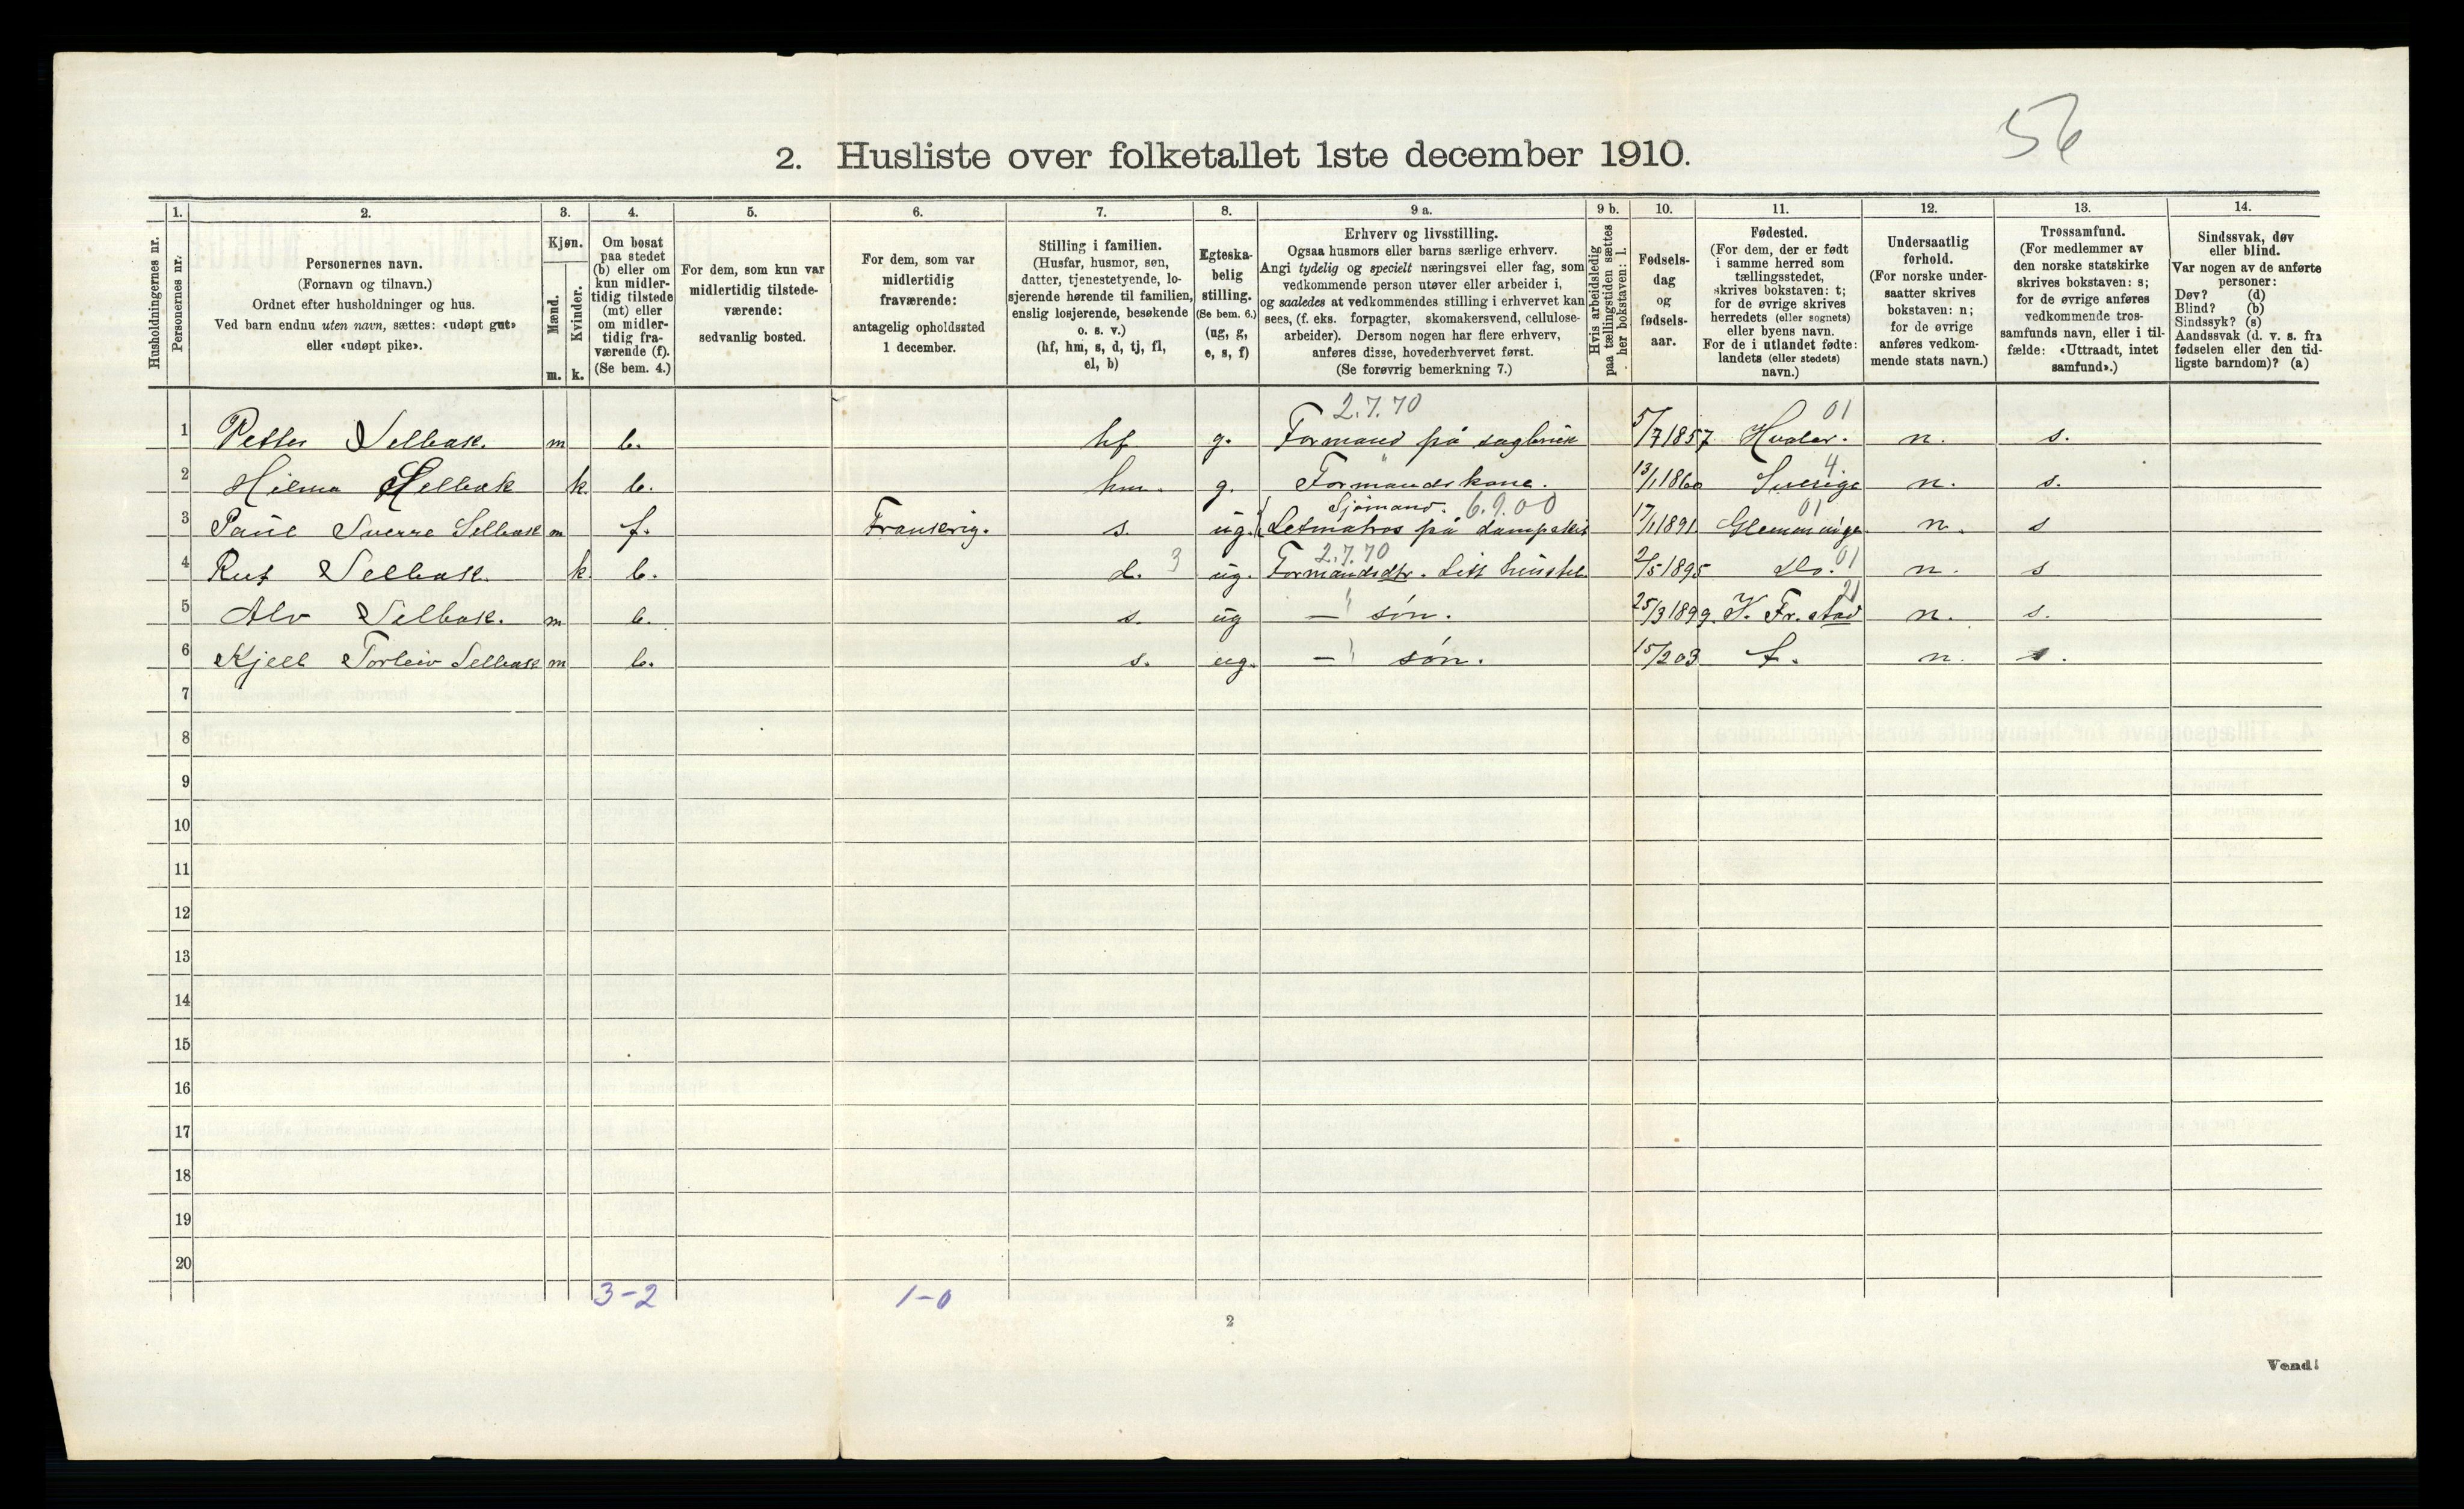 56
2. Husliste over folketallet 1ste december 1910.
Husholdningernes nr.
1.
Personernes nr.
2.
Personernes navn.
(Fornavn og tilnavn.)
Ordnet efter husholdninger og hus.
Ved barn endnu uten navn, sættes: «udøpt gut»
eller «udøpt pike».
3.
Kjøn.
Mænd.
Kvinder.
m. k.
4.
Om bosat
paa stedet
(b) eller om
kun midler-
tidig tilstede
(mt) eller
om midler-
tidig fra-
værende (f).
(Se bem. 4.)
5.
For dem, som kun var
midlertidig tilstede-
værende:
sedvanlig bosted.
6.
For dem, som var
midlertidig
fraværende:
antagelig opholdssted
1 december.
7.
Stilling i familien.
(Husfar, husmor, søn,
datter, tjenestetyende, lo-
sjerende hørende til familien,
enslig losjerende, besøkende
o. s. v.)
(hf, hm, s, d, tj, fl,
el, b)
8.
Egteska-
belig
stilling.
(Se bem. 6.)
(ug, g,
e, s, f)
9 a.
Erhverv og livsstilling.
Ogsaa husmors eller barns særlige erhverv.
Angi tydelig og specielt næringsvei eller fag, som
vedkommende person utøver eller arbeider i,
og saaledes at vedkommendes stilling i erhvervet kan
sees, (f. eks. forpagter, skomakersvend, cellulose-
arbeider). Dersom nogen har flere erhverv,
anføres disse, hovederhvervet først.
(Se forøvrig bemerkning 7.)
9 b.
Hvis arbeidsledig
paa tællingstiden sættes
her bokstaven: l.
10.
Fødsels-
dag
og
fødsels-
aar.
11.
Fødested.
(For dem, der er født
i samme herred som
tællingsstedet,
skrives bokstaven: t;
for de øvrige skrives
herredets (eller sognets)
eller byens navn.
For de i utlandet fødte:
landets (eller stedets)
navn.)
12.
Undersaatlig
forhold.
(For norske under-
saatter skrives
bokstaven: n;
for de øvrige
anføres vedkom-
mende stats navn.)
13.
Trossamfund.
(For medlemmer av
den norske statskirke
skrives bokstaven: s;
for de øvrige anføres
vedkommende tros-
samfunds navn, eller i til-
fælde: «Uttraadt, intet
samfund».)
14.
Sindssvak, døv
eller blind.
Var nogen av de anførte
personer:
Døv? (d)
Blind? (b)
Sindssyk? (s)
Aandssvak (d. v. s. fra
fødselen eller den tid-
ligste barndom)? (a)
2.7.70 01
1 Petter Selbak. m b. hf g. Formand på sagbruk 5/7 1857 Hvaler. n. s.
4
2 Hilma Selbak k. b. hm. g. Formandskone. 13/1 1860 Sverige n. s.
Sjømand. 6.9.00 01
3 Paul Sverre Selbak m f. Frankrig. s. ug. Letmatros på dampskib 17/1 1891 Glemminge n. s
2.7.70 01
4 Rut Selbak. k. b. d. 3 ug. Formandsdtr. Litt hüsstel 2/5 1895 Do. n. s
21
5 Alv Selbak. m b. s. ug — " søn. 25/3 1899. V. Fr.stad n. s.
6 Kjell Torleiv Selbak m b. s. ug. — " søn. 15/2 03 t. n. s.
7
8
9
10
11
12
13
14
15
16
17
18
19
20
3-2 1-0
2
Vend!